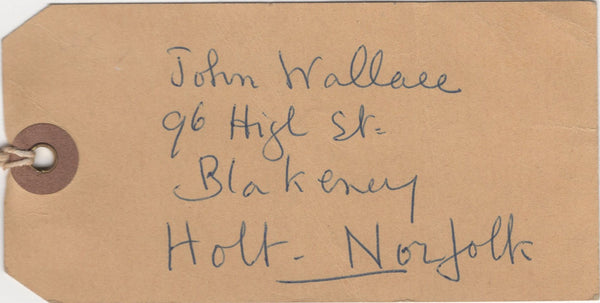 John Wallace
96 High St.
Blakeney
Holt - Norfolk